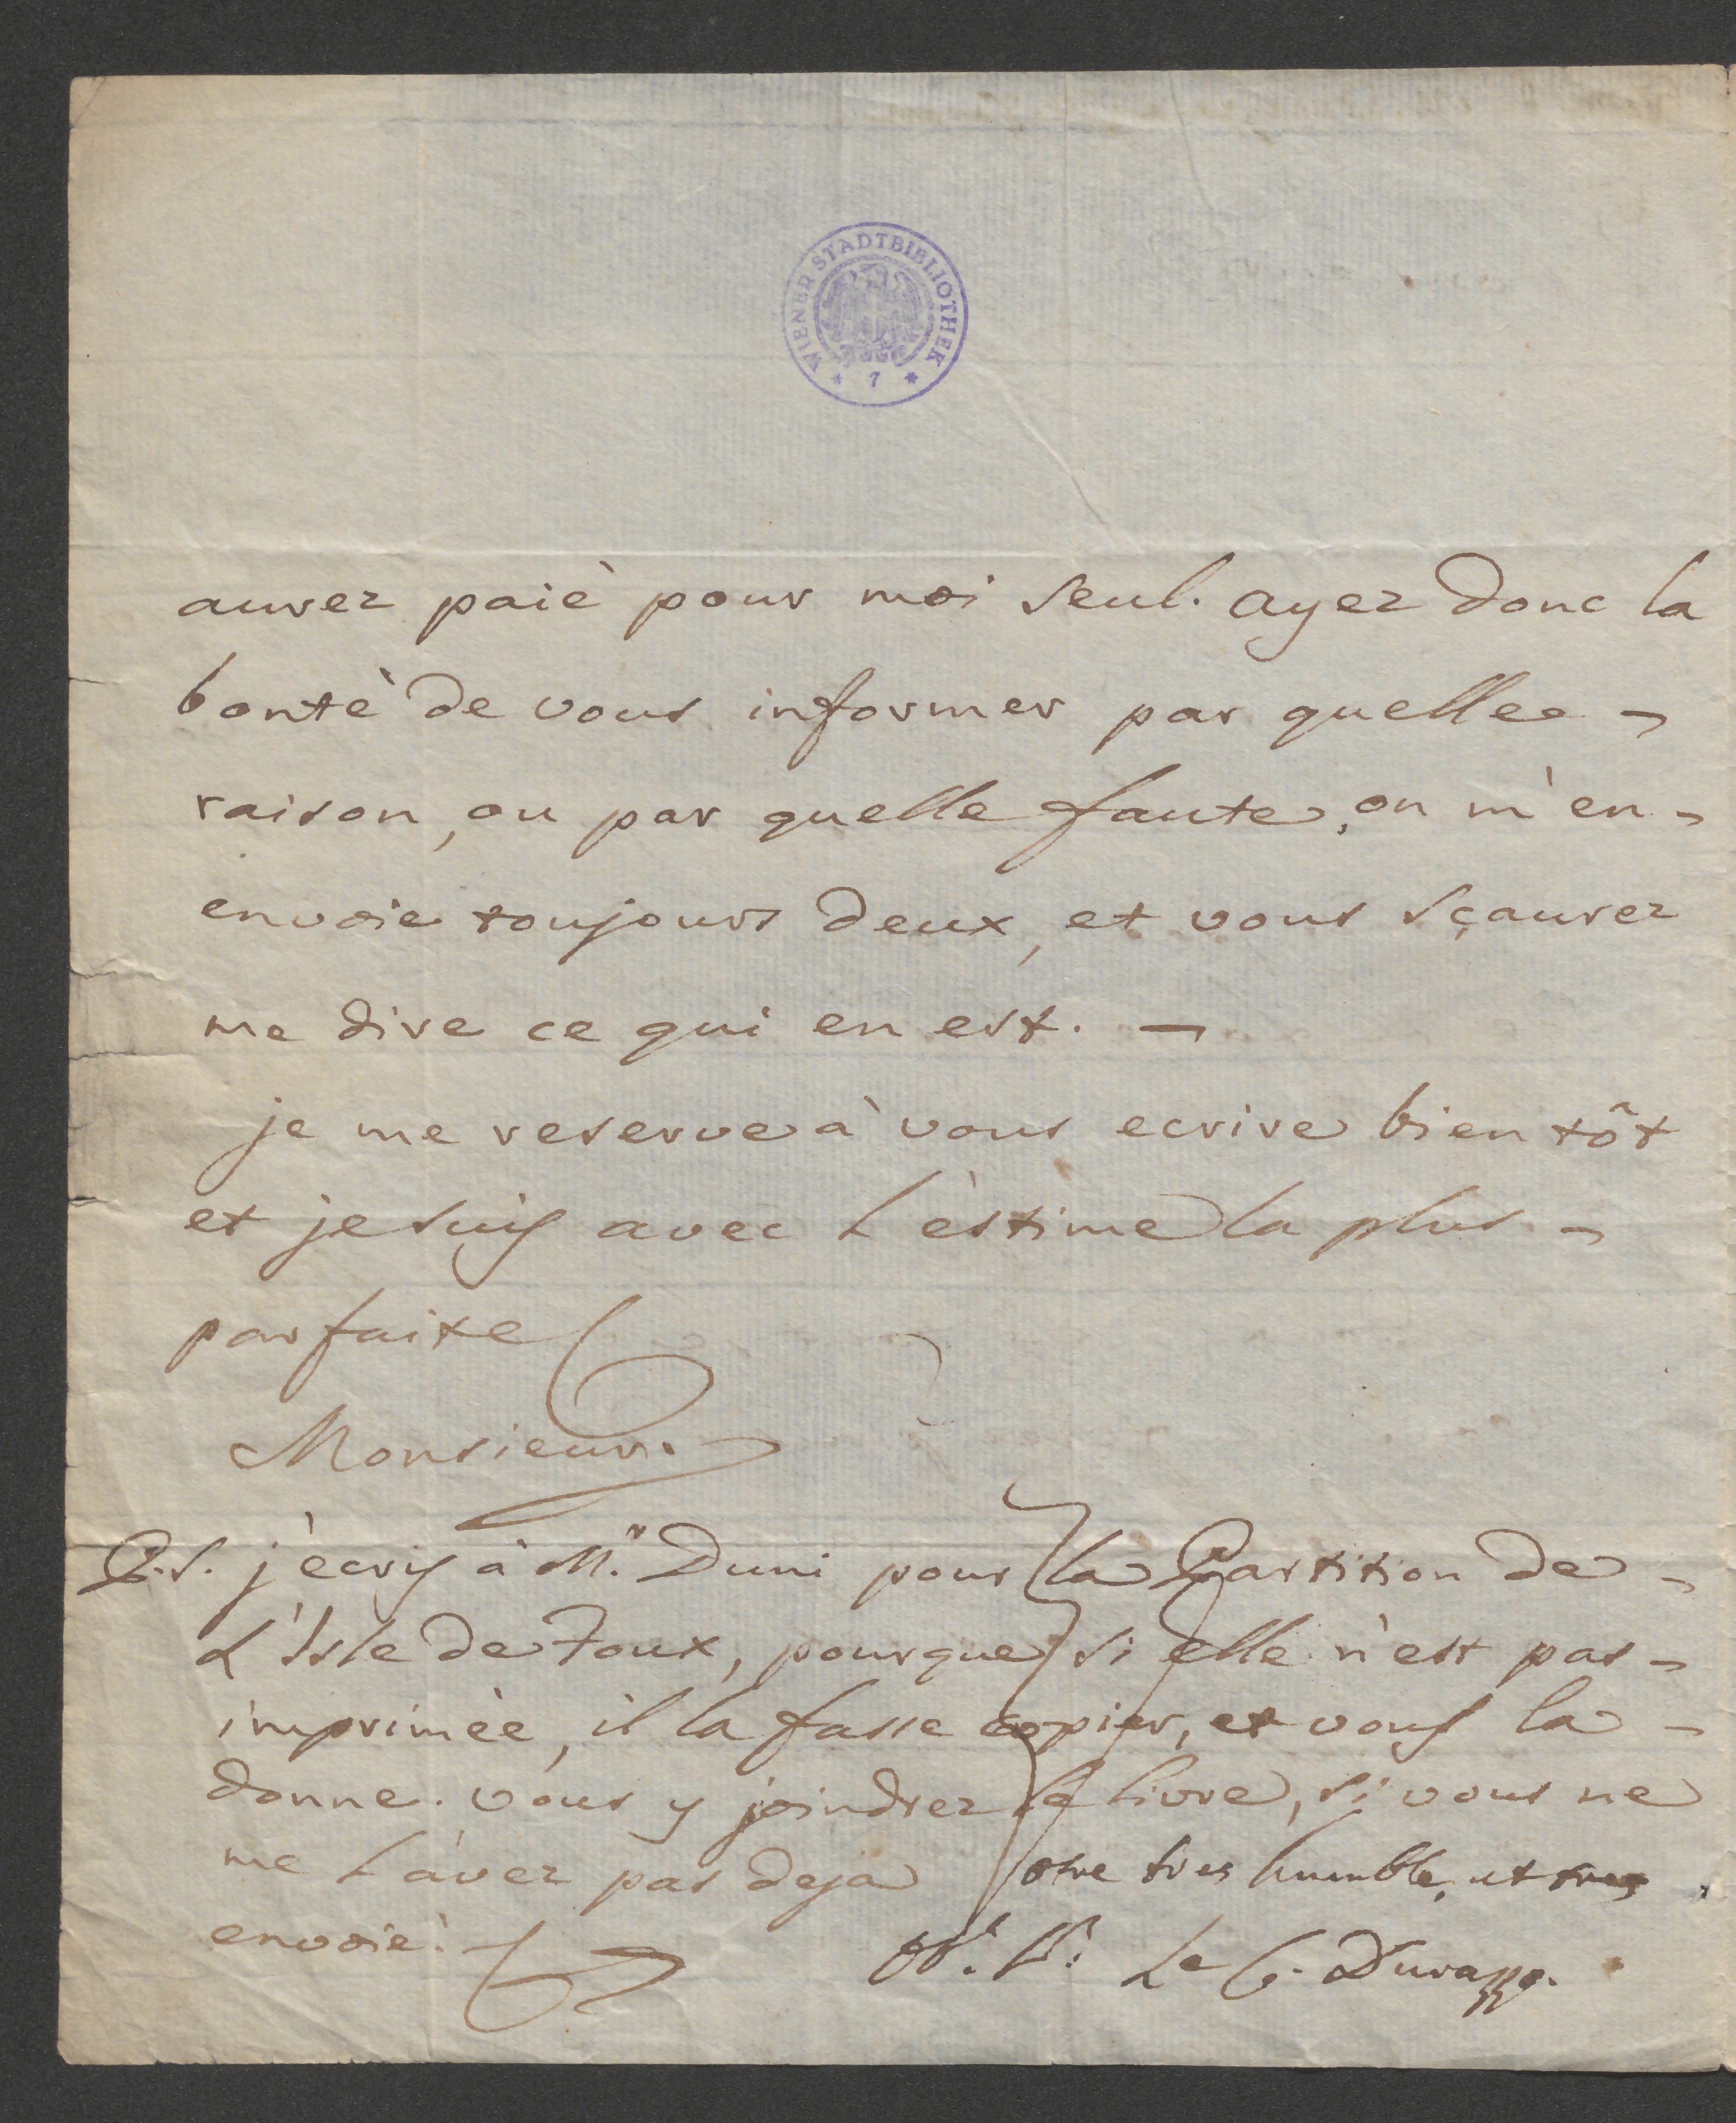 WIENER STADTBIBLIOTHEK * 7 *
aurez paiè pour moi seul. ayez donc la
bontè de vous informer par quelle
raison, ou par quelle faute, on m'en-
envoie toujours deux, et vous sçaurez
me dire ce qui en est. —
je me reserve à vous ecrire bien tôt
et je suis avec L'èstime la plus
parfaite
Monsieur.
P.S. j'ecris à M.r Duni pour la Partition de
L'Isle de Foux, pourque si elle n'est pas
imprimèe, il la fasse copier, et vous la
donne. vous y joindrez le livre, si vous ne
me L'avez pas deja
envoiè.
otre tres humble, et tres
Ob.t S.r Le C. Durazzo.